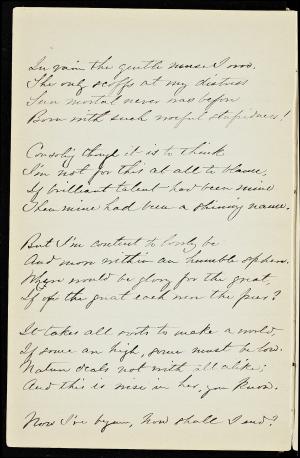 In vain the gentle muse I woo.
She only scoffs at my distress
Sure mortal never was before
Born with such woeful stupidness!
Consoling though it is to think
I'm not for this at all to blame,
If brilliant talent had been mine
Then mine had been a shining name.
But I'm content to lowly be
And move within an humble sphere.
Where would be glory for the great,
If of the great each were the peer?
It takes all sorts to make a world,
If some are high, some must be low.
Nature deals not with all alike;
And this is wise in her, you know.
Now I've begun, how shall I end?